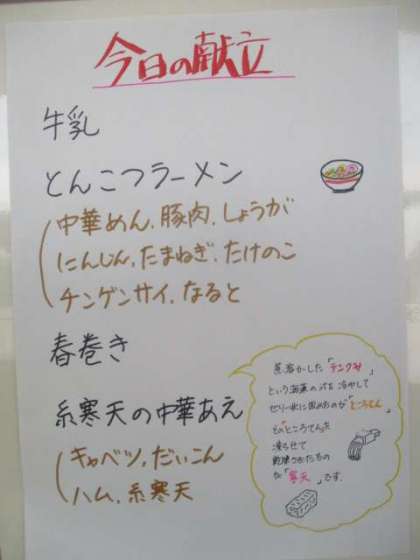 今日の献立
牛乳
とんこつラーメン
中華めん、豚肉、しょうが
にんじん、たまねぎ、たけのこ
チンゲンサイ、なると
春巻き
糸寒天の中華あえ
キャベツ、だいこん
ハム、糸寒天
煮溶かした「テングサ」
という海藻の汁を冷やして
ゼリー状に固めたのが「ところてん」
そのところてんを
凍らせて
乾燥させたもの
が「寒天」です。